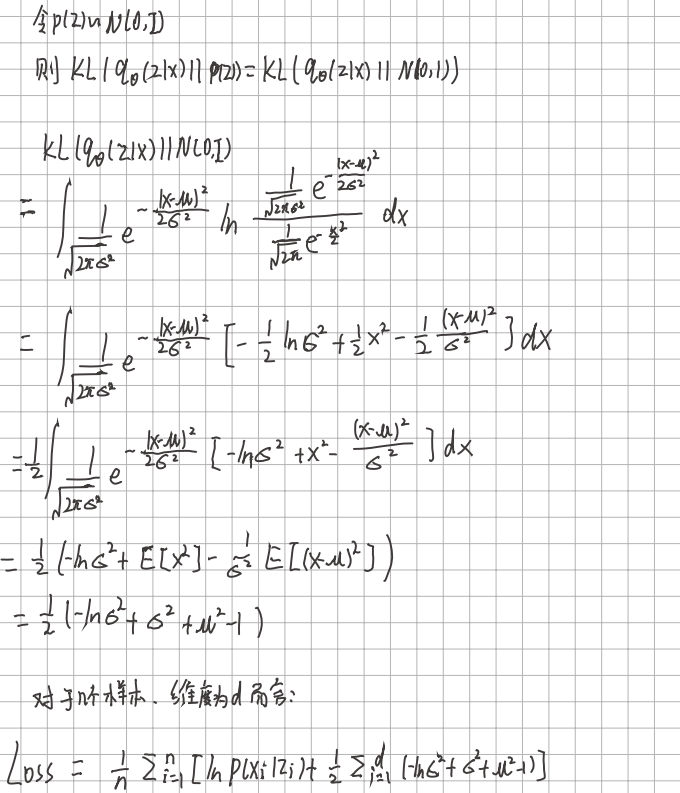 令p(z)~N(0,I)
则 KL(q_θ(z|x)||p(z))=KL(q_θ(z|x)||N(0,1))
KL(q_θ(z|x)||N(0,I)
= ∫ 1/√(2πσ²) e^{-(x-μ)²/2σ²} ln \frac{1/√(2πσ²) e^{-(x-μ)²/2σ²}}{1/√(2π) e^{-x²/2}} dx
= ∫ 1/√(2πσ²) e^{-(x-μ)²/2σ²} [-1/2 lnσ² + 1/2 x² - 1/2 (x-μ)²/σ²] dx
= 1/2 ∫ 1/√(2πσ²) e^{-(x-μ)²/2σ²} [-lnσ² + x² - (x-μ)²/σ²] dx
= 1/2 (-lnσ² + E[x²] - 1/σ² E[(x-μ)²])
= 1/2 (-lnσ² + σ² + μ² - 1)
对于n个样本、维度为d而言:
Loss = 1/n Σ_{i=1}^{n} [ln p(x_i|z_i) + 1/2 Σ_{j=1}^{d} (-lnσ²+σ²+μ²-1)]